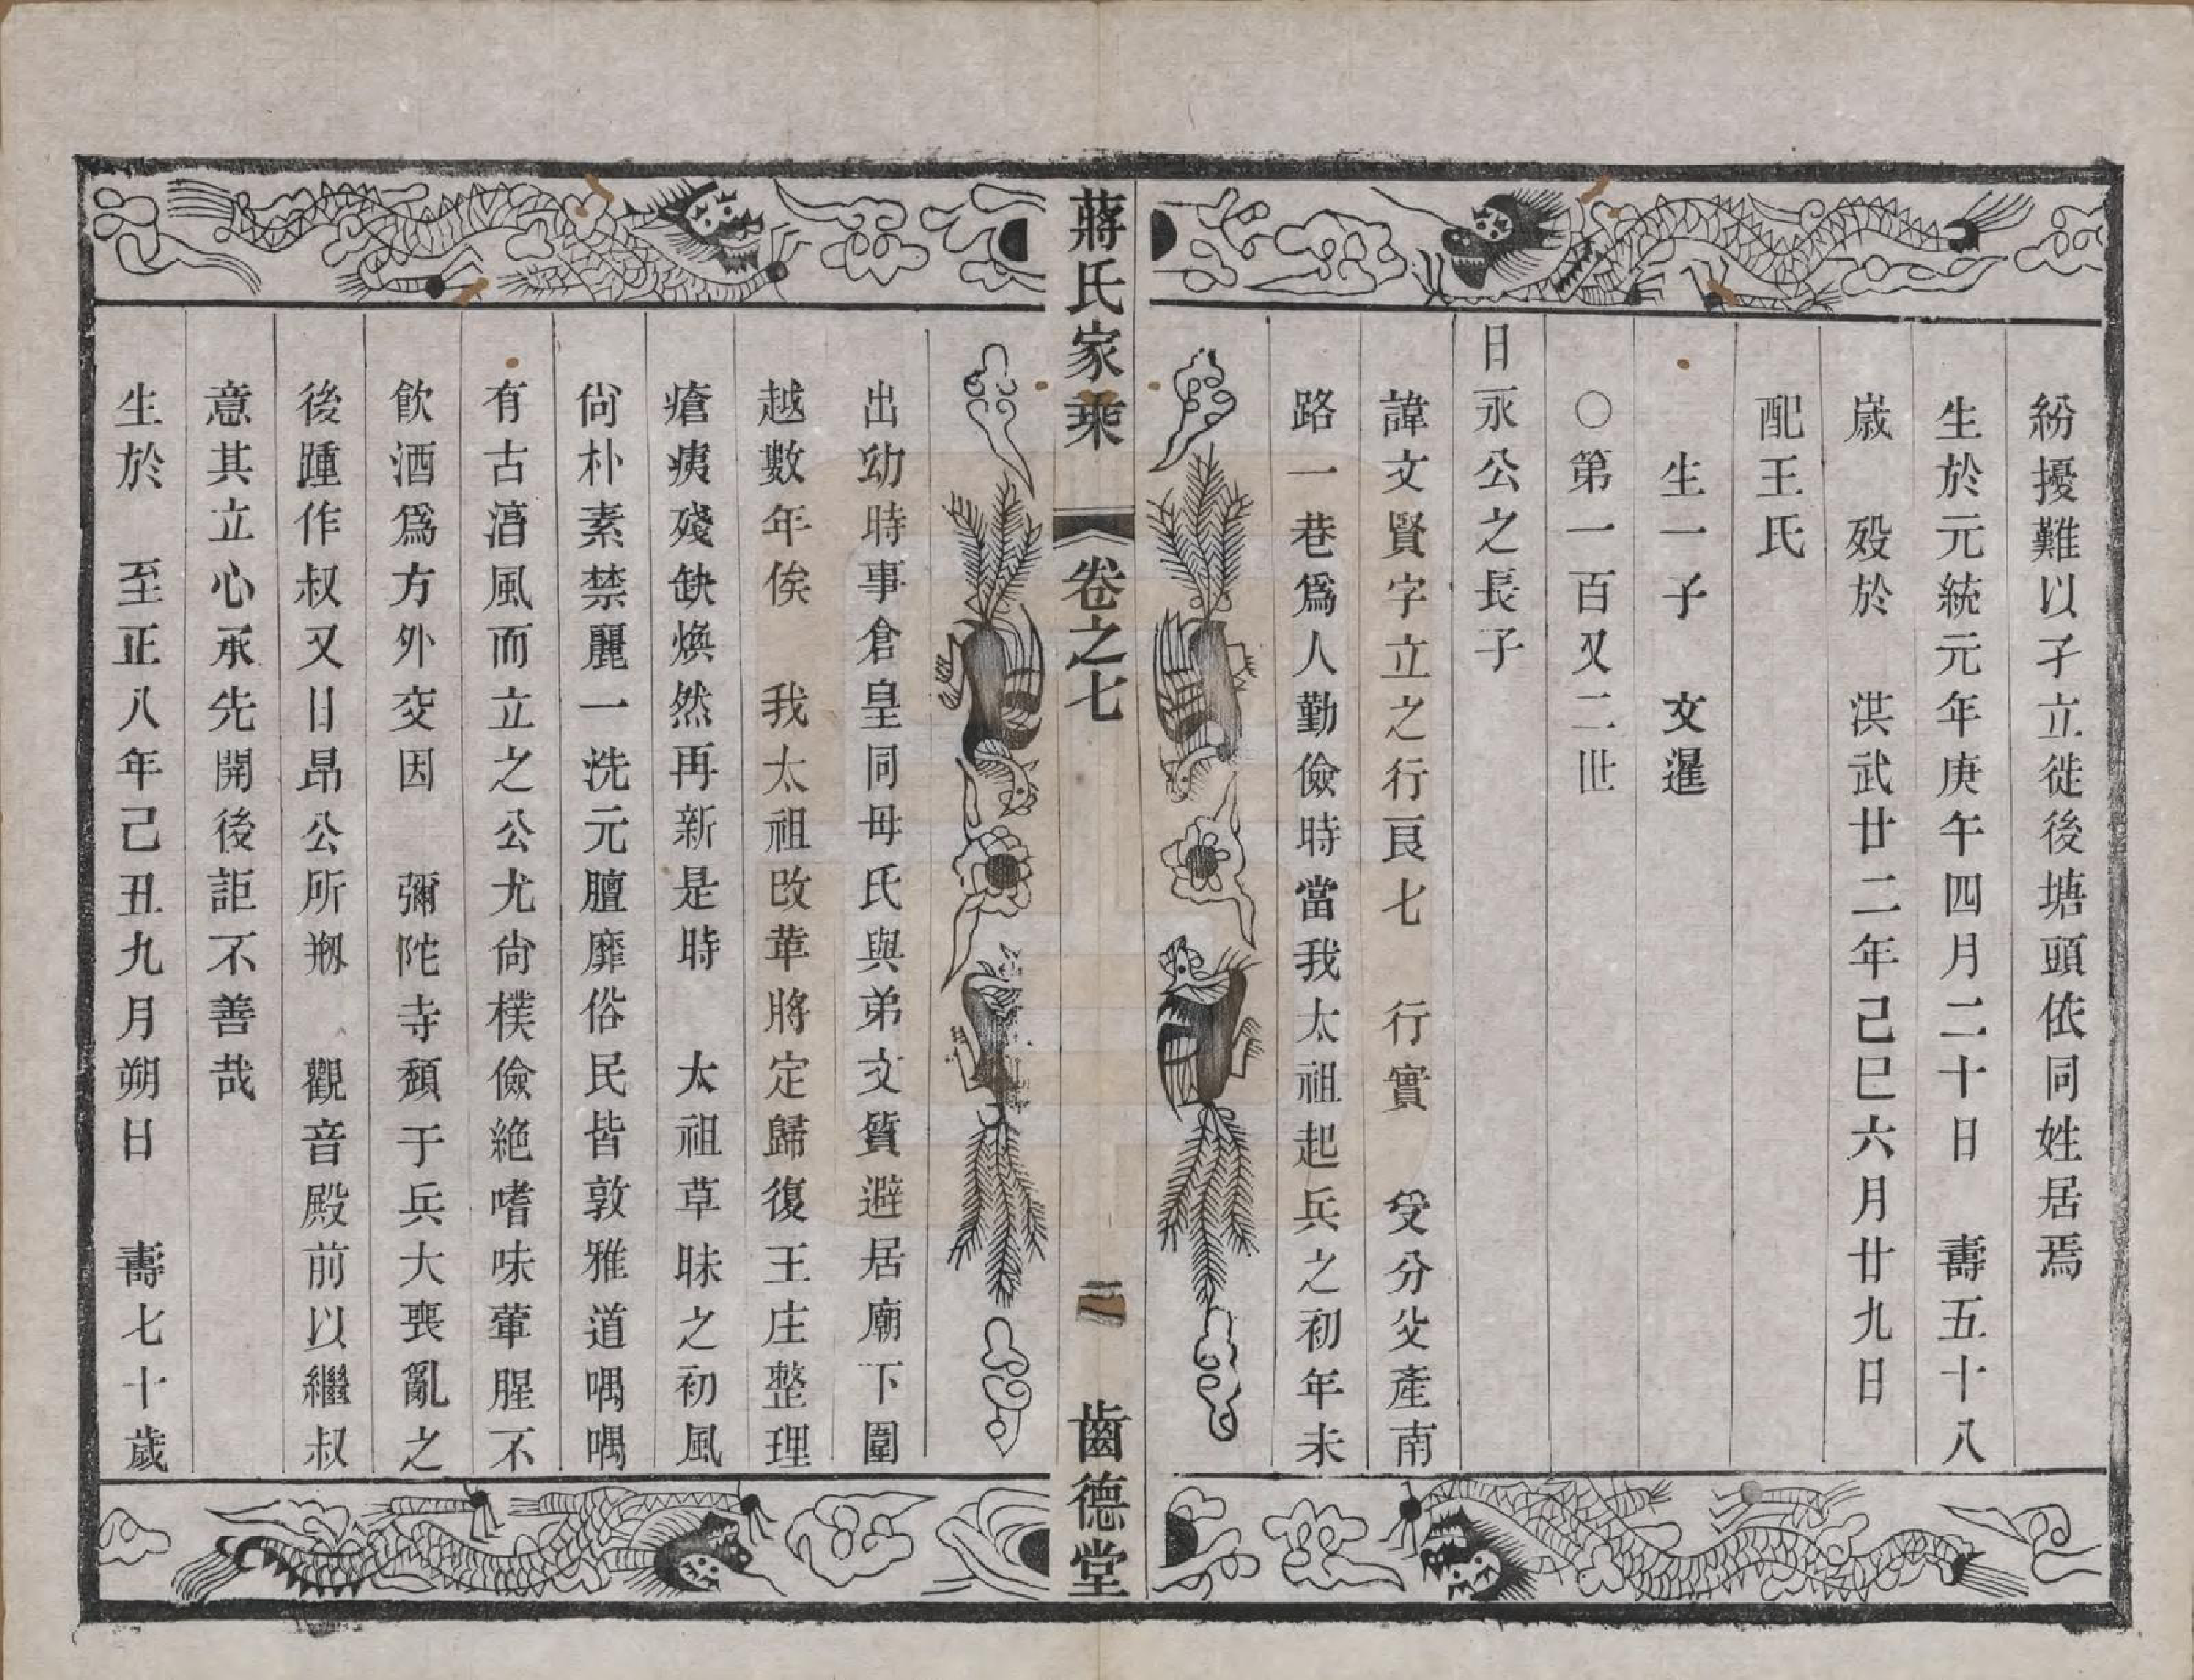 紛擾難以孑立徙後塘頭依同姓居焉
生於元統元年庚午四月二十日　壽五十八
歲　殁於　洪武廿二年己巳六月廿九日
配王氏
生一子　文暹
○第一百又二世
日永公之長子
諱文賢字立之行艮七　行實　受分父產南
路一巷爲人勤儉時當我太祖起兵之初年未
蔣氏家乘　卷之七　二　齒德堂
出幼時事倉皇同母氏與弟文質避居廟下圍
越數年俟　我太祖改革將定歸復王庄整理
瘡痍殘缺煥然再新是時　太祖草昧之初風
尙朴素禁麗一洗元膻靡俗民皆敦雅道喁喁
有古淳風而立之公尤尙樸儉絶嗜味葷腥不
飲酒爲方外交因　彌陀寺頹于兵大喪亂之
後踵作叔又日昂公所剏　觀音殿前以繼叔
意其立心承先開後詎不善哉
生於　至正八年己丑九月朔日　壽七十歲